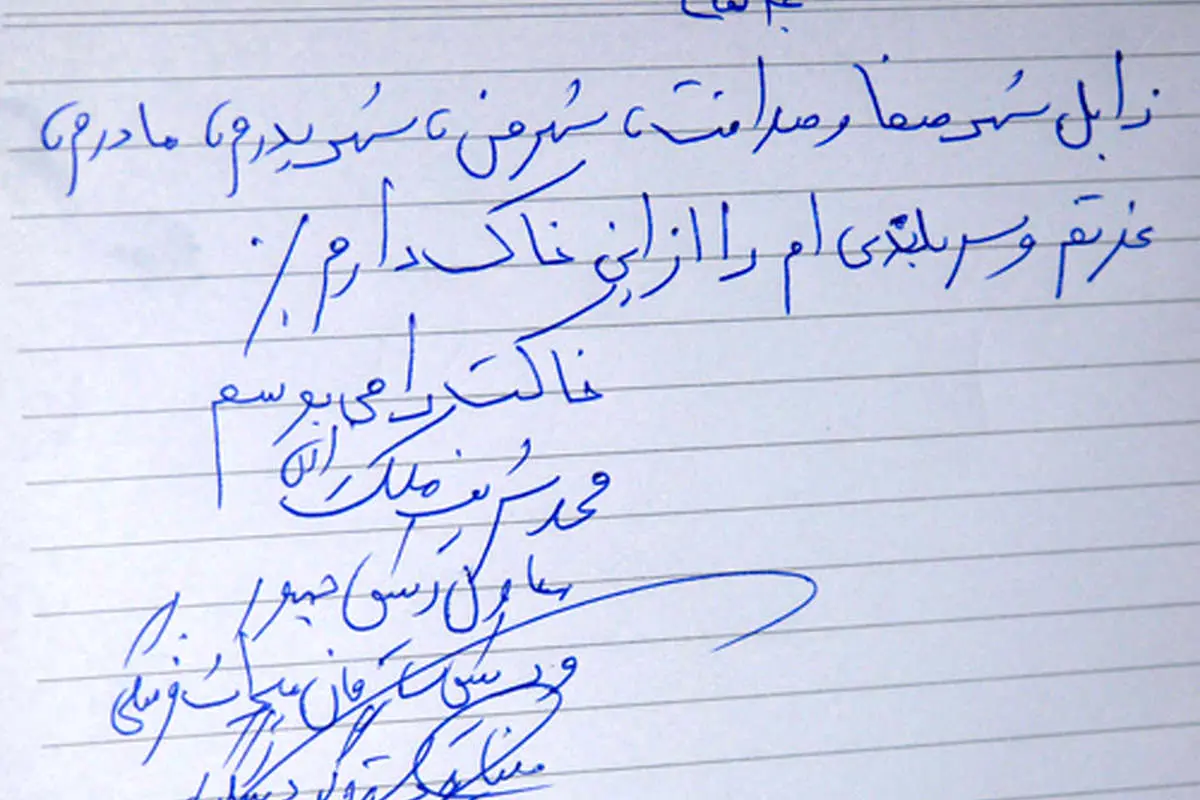 زابل شهر صفا و صداقت، شهر من، شهر پدرم، مادرم،
عزتم و سربلندی ام را از این خاک دارم.
خاکت را می بوسم
محمد شریف ملک زاده
معاون رئیس جمهور
و رئیس سازمان میراث فرهنگی